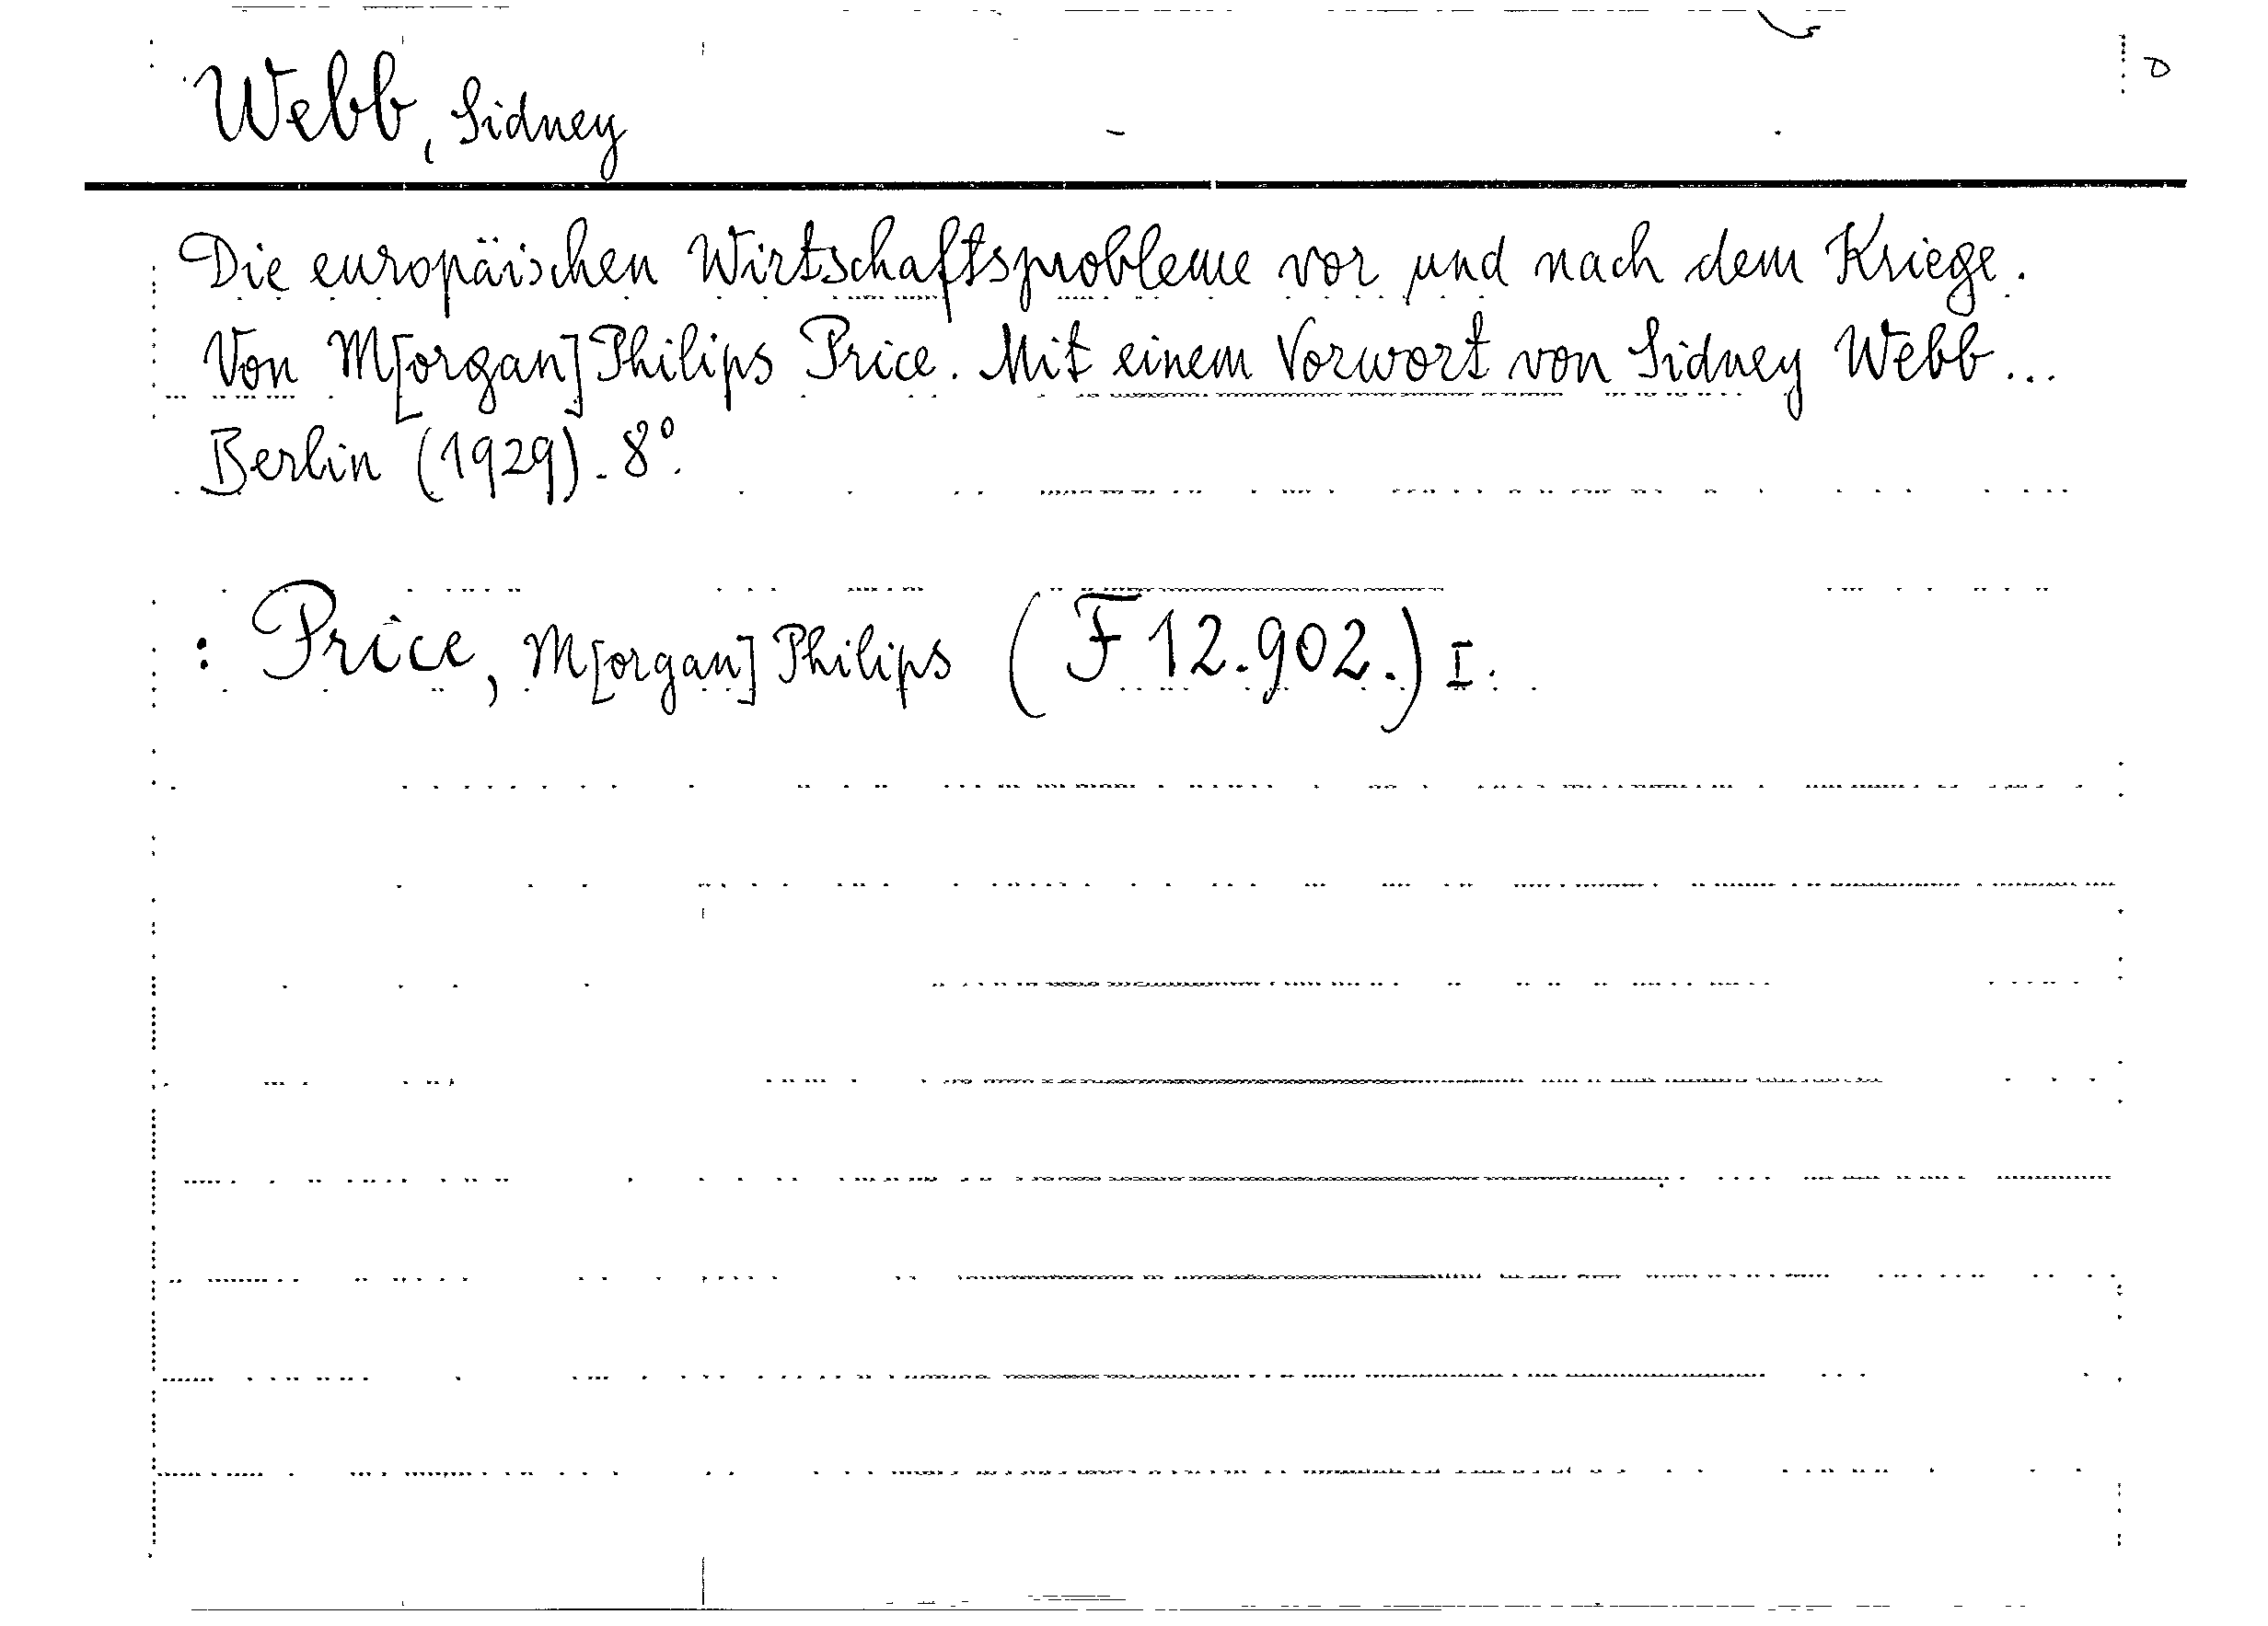 Webb, Sidney
Die europäischen Wirtschaftsprobleme vor und nach dem Kriege.
Von M[organ] Philips Price. Mit einem Vorwort von Sidney Webb...
Berlin (1929). 8°.
: Price, M[organ] Philips (F 12.902.) I.